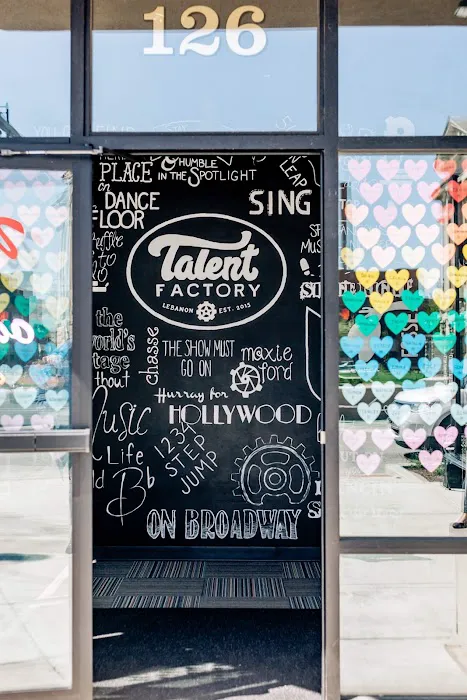 126
PLACE & HUMBLE
on IN THE SPOTLIGHT
LEAP
DANCE
FLOOR
SING
Talent
FACTORY
LEBANON EST. 2015
the
world's
stage
chasse
THE SHOW MUST
GO ON
moxie
ford
Hurray for
HOLLYWOOD
Music
Life
1234
STEP
JUMP
Bb
ON BROADWAY